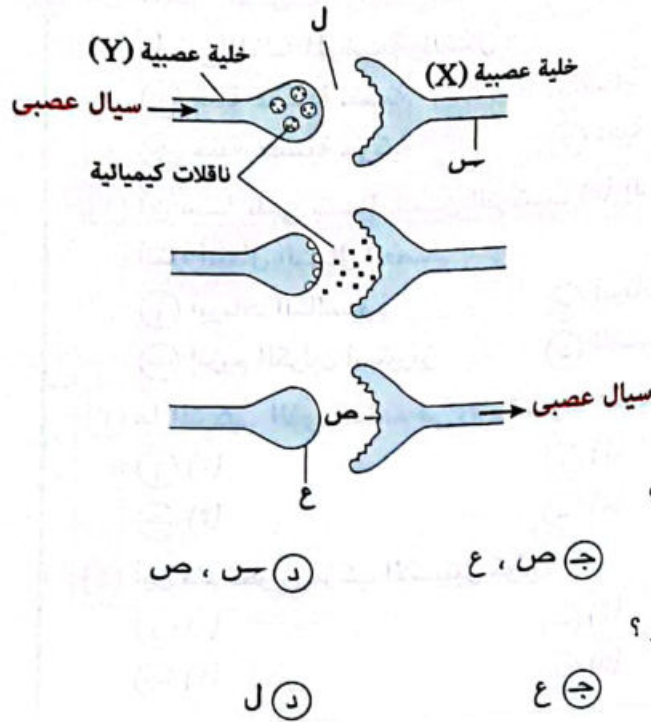 ل
خلية عصبية (Y)
خلية عصبية (X)
سيال عصبى
س
ناقلات كيميائية
سيال عصبى
ص
ع
ج ص ، ع
د س ، ص
؟
ج ع
د ل